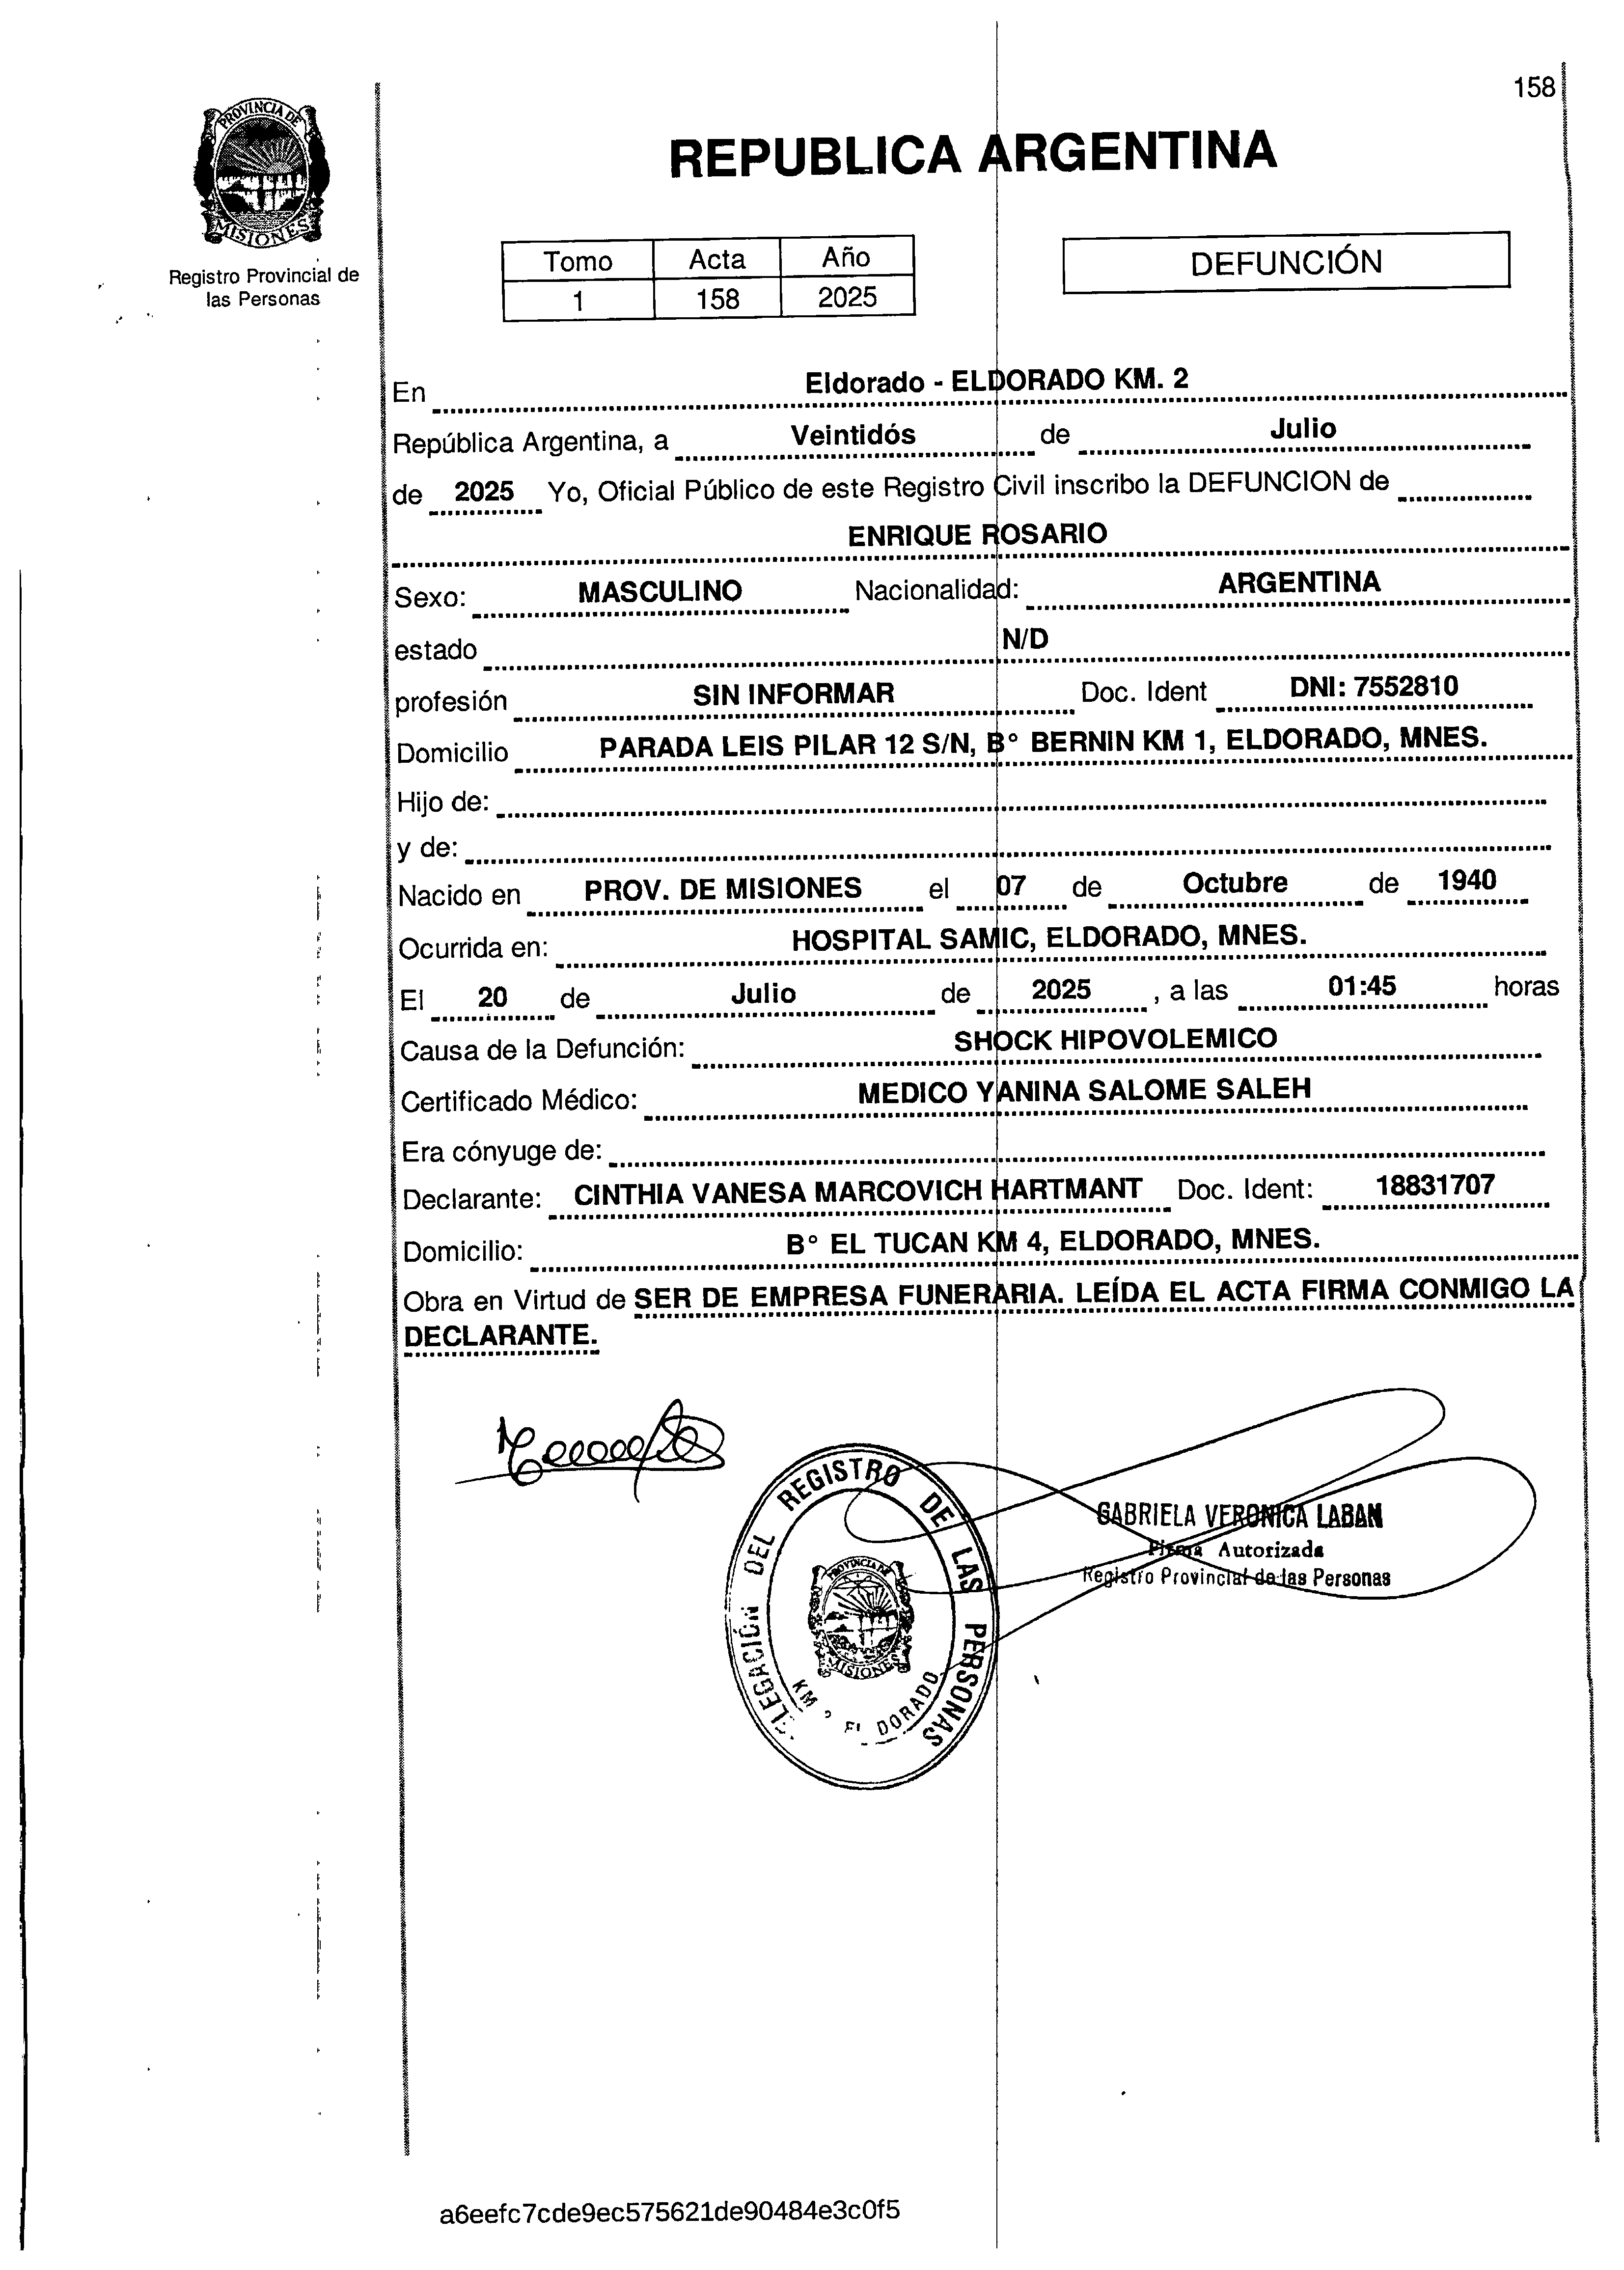 158
PROVINCIA DE
MISIONES
Registro Provincial de
las Personas
REPUBLICA ARGENTINA
Tomo Acta Año
1 158 2025
DEFUNCIÓN
En Eldorado - ELDORADO KM. 2
República Argentina, a Veintidós de Julio
de 2025 Yo, Oficial Público de este Registro Civil inscribo la DEFUNCION de
ENRIQUE ROSARIO
Sexo: MASCULINO Nacionalidad: ARGENTINA
estado N/D
profesión SIN INFORMAR Doc. Ident DNI: 7552810
Domicilio PARADA LEIS PILAR 12 S/N, B° BERNIN KM 1, ELDORADO, MNES.
Hijo de:
y de:
Nacido en PROV. DE MISIONES el 07 de Octubre de 1940
Ocurrida en: HOSPITAL SAMIC, ELDORADO, MNES.
El 20 de Julio de 2025 , a las 01:45 horas
Causa de la Defunción: SHOCK HIPOVOLEMICO
Certificado Médico: MEDICO YANINA SALOME SALEH
Era cónyuge de:
Declarante: CINTHIA VANESA MARCOVICH HARTMANT Doc. Ident: 18831707
Domicilio: B° EL TUCAN KM 4, ELDORADO, MNES.
Obra en Virtud de SER DE EMPRESA FUNERARIA. LEÍDA EL ACTA FIRMA CONMIGO LA
DECLARANTE.
DEL REGISTRO DE LAS PERSONAS
PROVINCIA DE
MISIONES
KM DORADO
GABRIELA VERONICA LABAN
Firma Autorizada
Registro Provincial de las Personas
a6eefc7cde9ec575621de90484e3c0f5